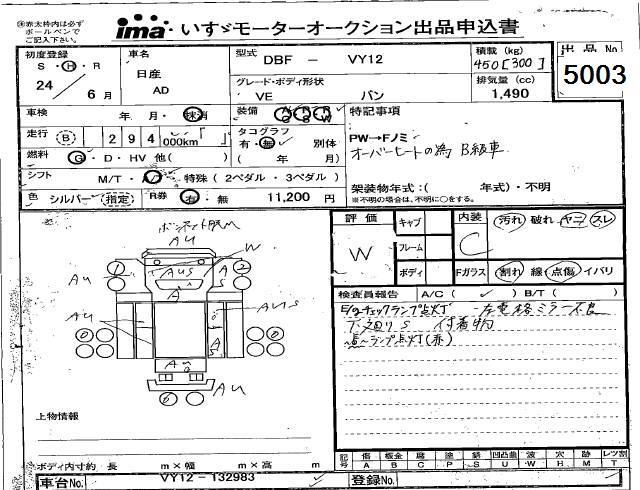 ※赤太枠内は必ず
ボールペンで
ご記入下さい。
ima いすゞモーターオークション出品申込書
初度登録
S・H・R
24
6 月
車名
日産
AD
型式 DBF － VY12
グレード・ボディ形状
VE バン
積載 (kg)
450[300]
排気量 (cc)
1,490
出品No
5003
車検 年 月・抹消
装備
特記事項
走行 (B) 294 000km「 」
タコグラフ
有・無 別体
( 年 月)
燃料 G・D・HV 他( )
PW→Fノミ
オーバーヒートの為 B級車
シフト M/T・A 特殊(2ペダル・3ペダル)
架装物年式:( 年式)・不明
※不明の場合は、不明に○をする。
色 シルバー(指定)
R券 有・無 11,200 円
評価
W
キャブ
フレーム
ボディ
内装
C
汚れ 破れ ヤニ スレ
Fガラス
割れ 線 点傷 イバリ
検査員報告 A/C( ✓ ) B/T( )
E/gチェックランプ点灯 左電格ミラー不良
下廻りS 付着物
ランプ点灯(赤)
AU
W
AU
1
AUS
A
2
A
AU
AUS
A
AU
6
上物情報
ボディ内寸約 長 m×幅 m×高 m
車台No. VY12-132983
登録No.
記号
傷 板金 腐 塗 錆 凹凸曲 波 穴 跡 レツ割
A B C P S U W H M T